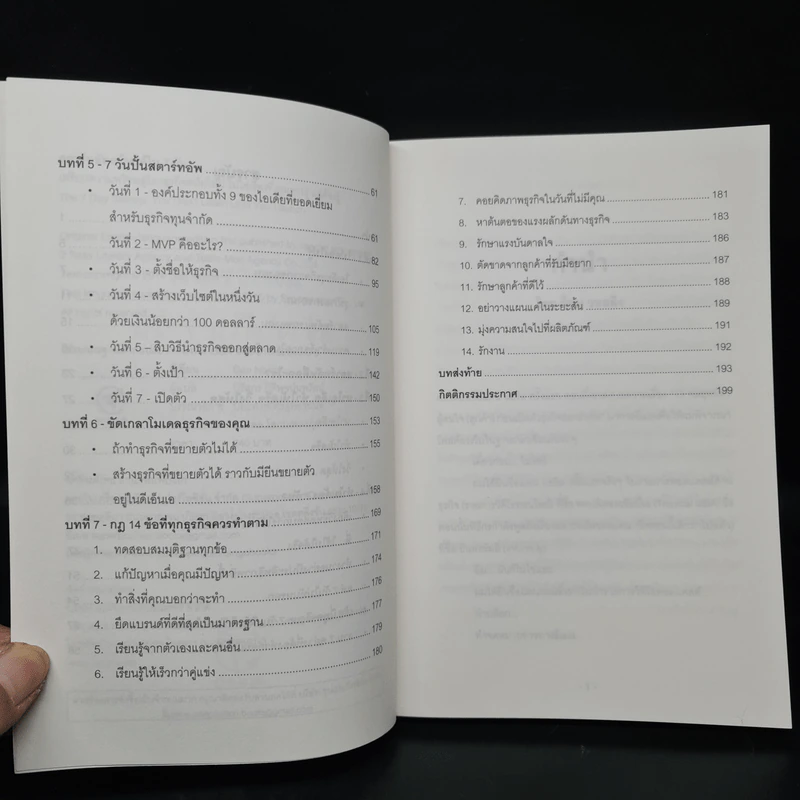 บทที่ 5 - 7 วันปั้นสตาร์ทอัพ 61
• วันที่ 1 - องค์ประกอบทั้ง 9 ของไอเดียที่ยอดเยี่ยม
สำหรับธุรกิจทุนจำกัด 61
วันที่ 2 - MVP คืออะไร? 82
• วันที่ 3 - ตั้งชื่อให้ธุรกิจ 95
• วันที่ 4 - สร้างเว็บไซต์ในหนึ่งวัน
ด้วยเงินน้อยกว่า 100 ดอลลาร์ 105
• วันที่ 5 – สิบวิธีนำธุรกิจออกสู่ตลาด 119
• วันที่ 6 - ตั้งเป้า 142
• วันที่ 7 - เปิดตัว 150
บทที่ 6 - ขัดเกลาโมเดลธุรกิจของคุณ 153
• ถ้าทำธุรกิจที่ขยายตัวไม่ได้ 155
• สร้างธุรกิจที่ขยายตัวได้ ราวกับมียีนขยายตัว
อยู่ในดีเอ็นเอ 158
บทที่ 7 - กฎ 14 ข้อที่ทุกธุรกิจควรทำตาม 169
1. ทดสอบสมมุติฐานทุกข้อ 171
2. แก้ปัญหาเมื่อคุณมีปัญหา 174
3. ทำสิ่งที่คุณบอกว่าจะทำ 176
4. ยึดแบรนด์ที่ดีที่สุดเป็นมาตรฐาน 177
5. เรียนรู้จากตัวเองและคนอื่น 179
6. เรียนรู้ให้เร็วกว่าคู่แข่ง 180
7. คอยคิดภาพธุรกิจในวันที่ไม่มีคุณ 181
8. หาต้นตอของแรงผลักดันทางธุรกิจ 183
9. รักษาแรงบันดาลใจ 186
10. ตัดขาดจากลูกค้าที่รับมือยาก 187
11. รักษาลูกค้าที่ดีไว้ 188
12. อย่าวางแผนแค่ในระยะสั้น 189
13. มุ่งความสนใจไปที่ผลิตภัณฑ์ 191
14. รักงาน 192
บทส่งท้าย 193
กิตติกรรมประกาศ 199